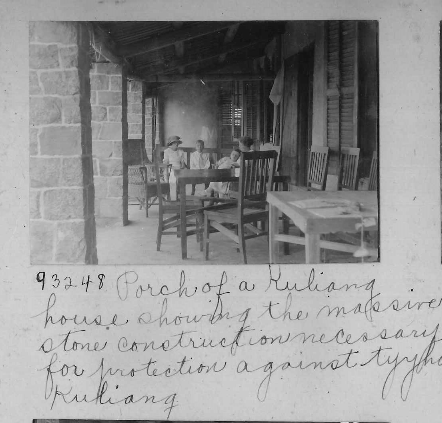 93248 Porch of a Kuliang
house showing the massive
stone construction necessary
for protection against
Kuliang